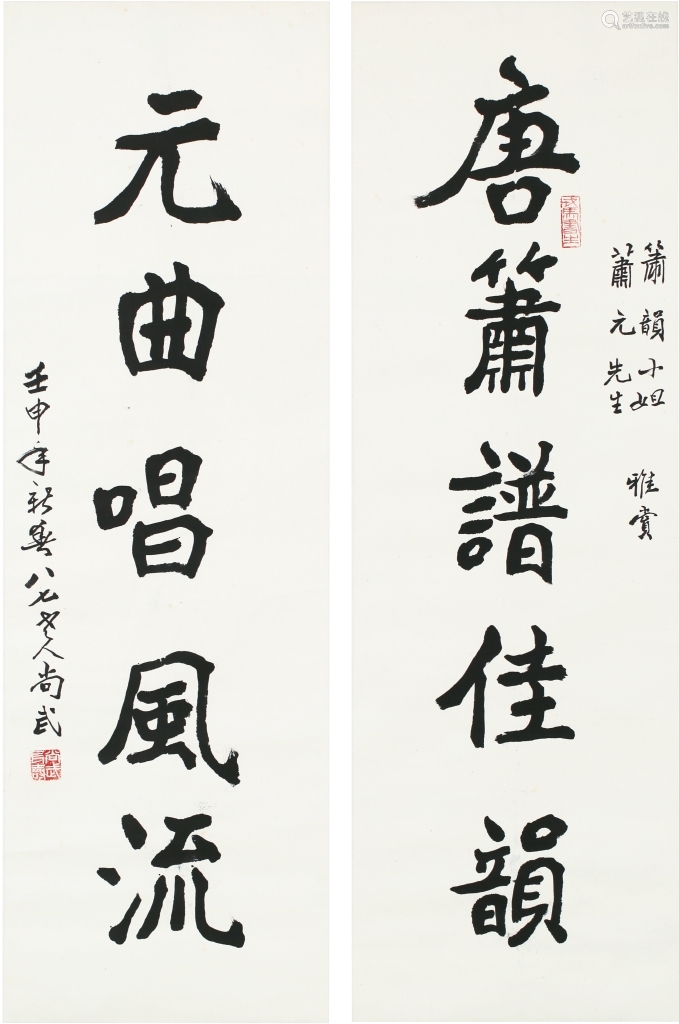 唐簫譜佳韻
簫韻小姐
蕭元先生
雅賞
元曲唱風流
壬申年新春八七老人尚武
艺狐在线
artfoxlive.com